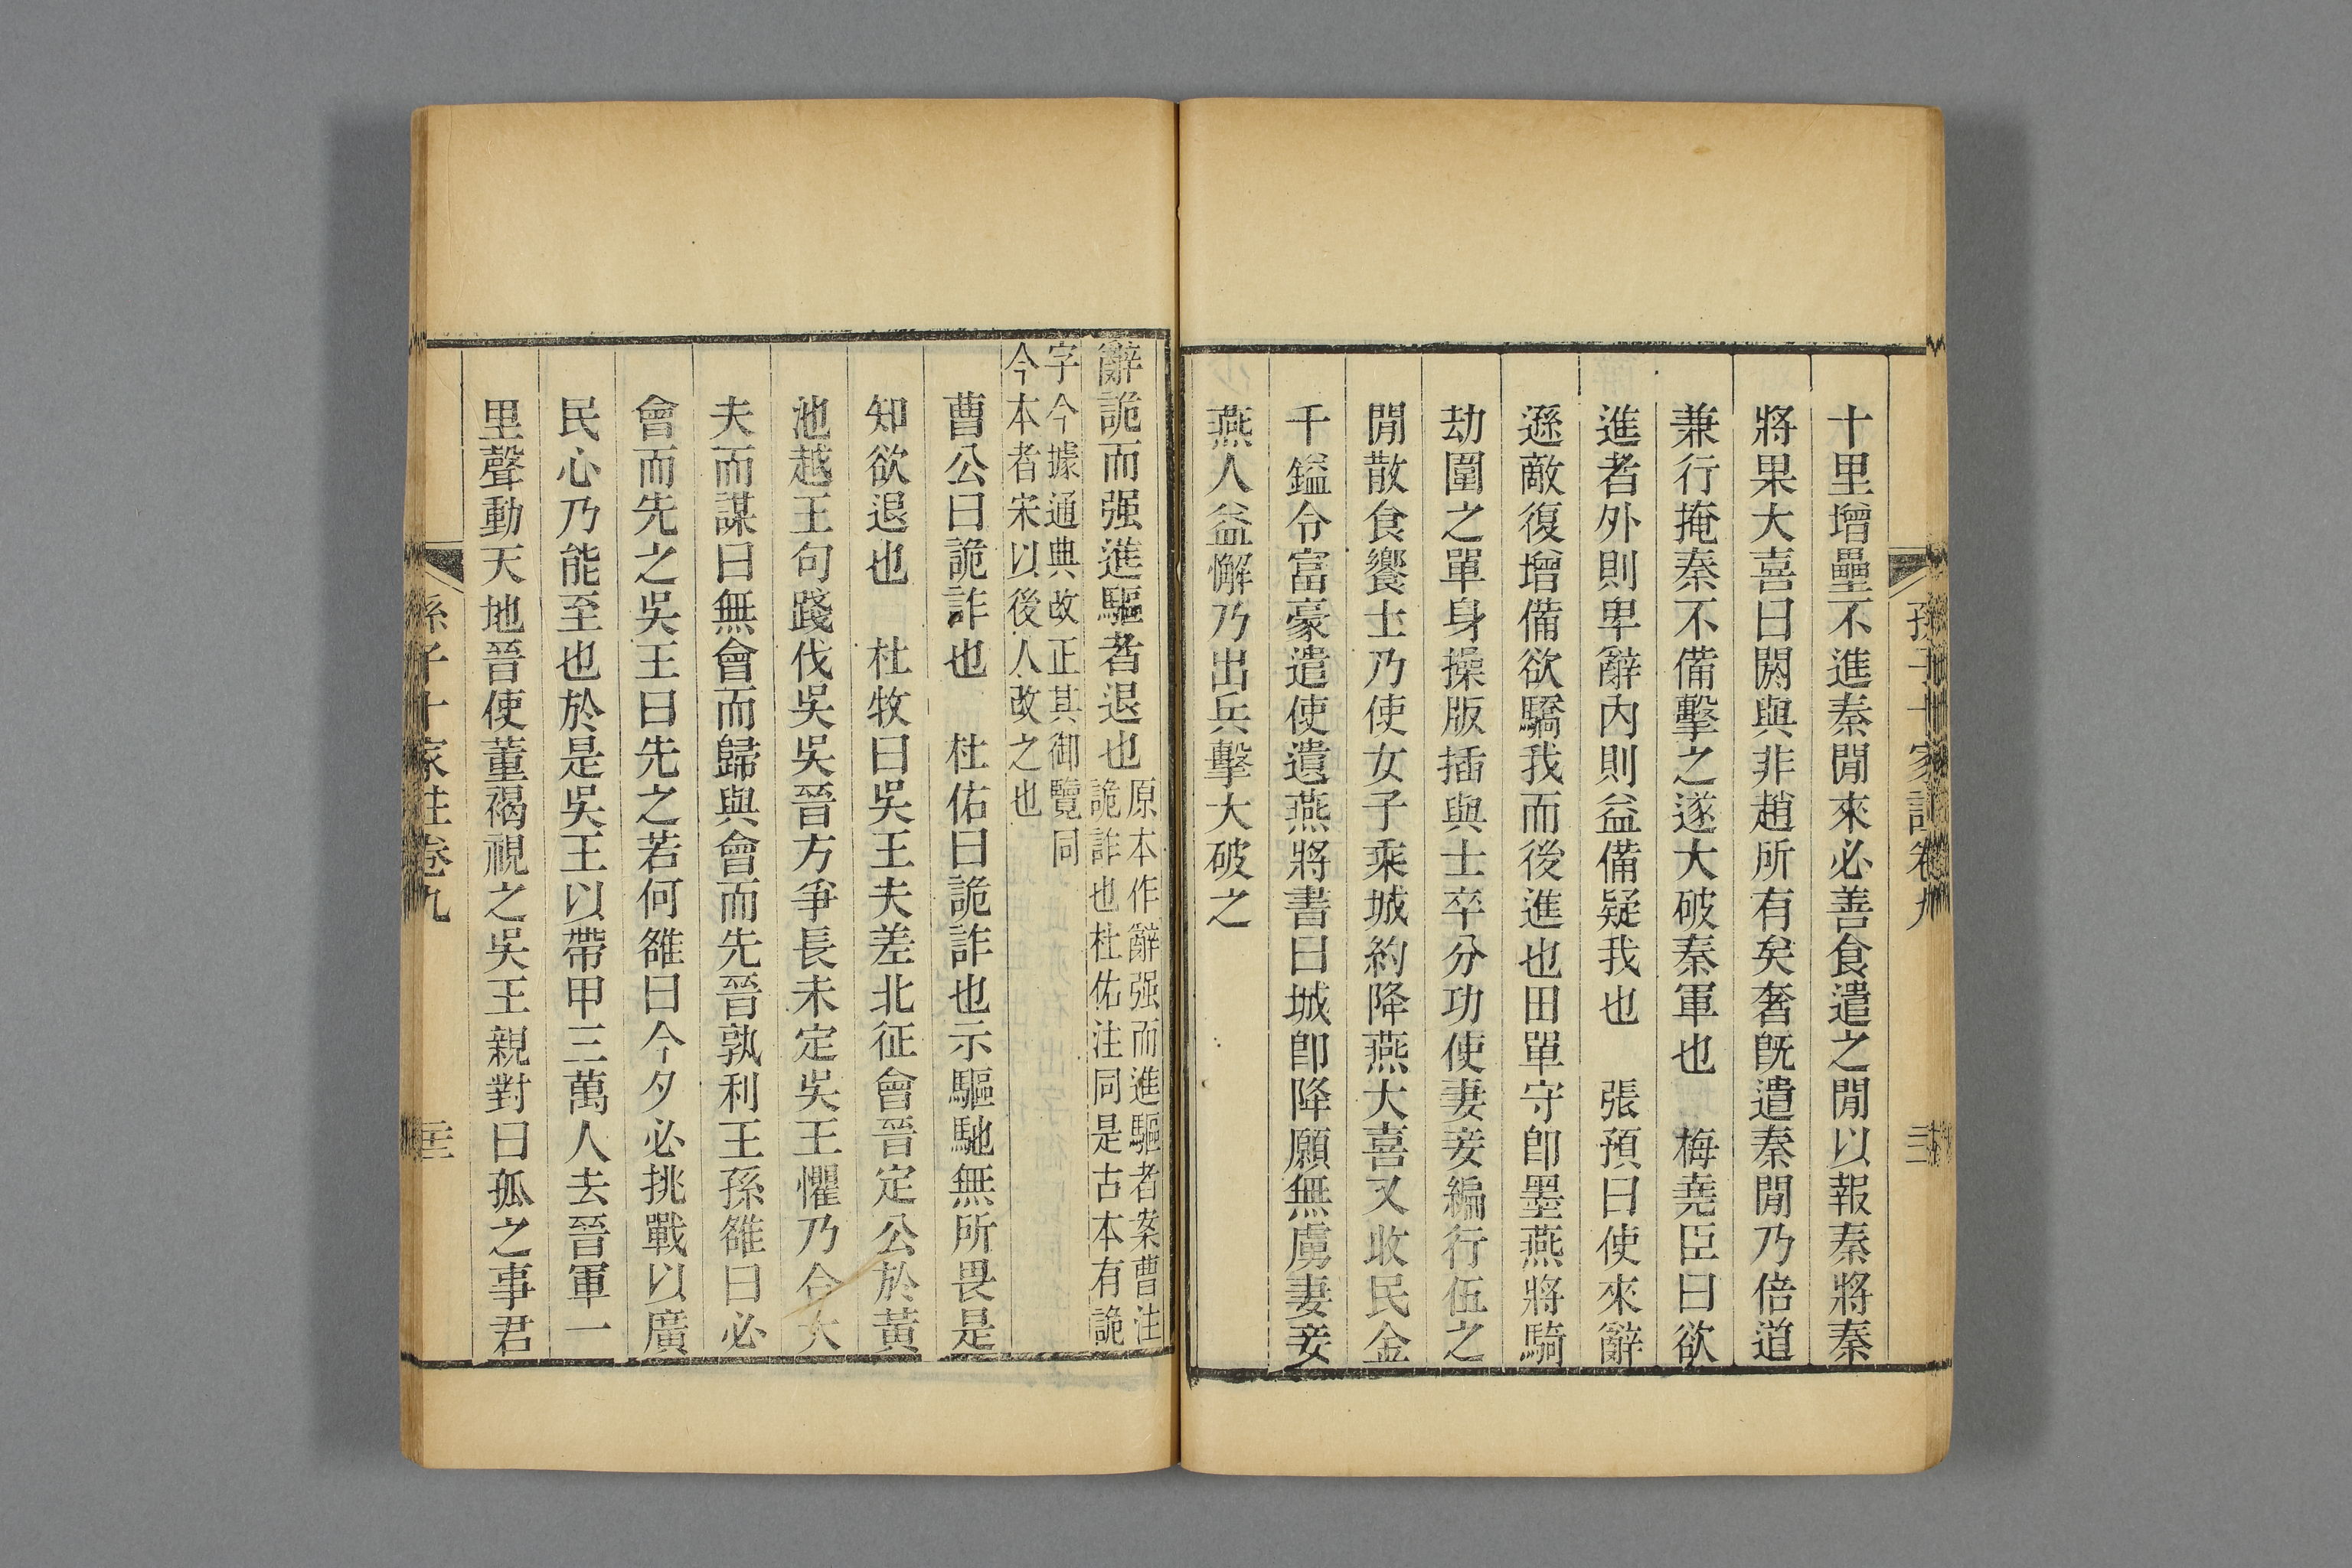 十里增壘不進秦閒來必善食遣之閒以報秦將秦
將果大喜曰閼與非趙所有矣奢旣遣秦閒乃倍道
兼行掩秦不備擊之遂大破秦軍也　梅堯臣曰欲
進者外則卑辭內則益備疑我也　張預曰使來辭
遜敵復增備欲驕我而後進也田單守卽墨燕將騎
劫圍之單身操版插與士卒分功使妻妾編行伍之
閒散食饗士乃使女子乘城約降燕大喜又收民金
千鎰令富豪遣使遺燕將書曰城卽降願無虜妻妾
燕人益懈乃出兵擊大破之
辭詭而强進驅者退也
原本作辭强而進驅者案曹注
詭詐也杜佑注同是古本有詭
字今據通典改正其御覽同
今本者宋以後人改之也
曹公曰詭詐也　杜佑曰詭詐也示驅馳無所畏是
知欲退也　杜牧曰吳王夫差北征會晉定公於黃
池越王句踐伐吳吳晉方爭長未定吳王懼乃合大
夫而謀曰無會而歸與會而先晉孰利王孫雒曰必
會而先之吳王曰先之若何雒曰今夕必挑戰以廣
民心乃能至也於是吳王以帶甲三萬人去晉軍一
里聲動天地晉使董褐視之吳王親對曰孤之事君
孫子十家注卷九